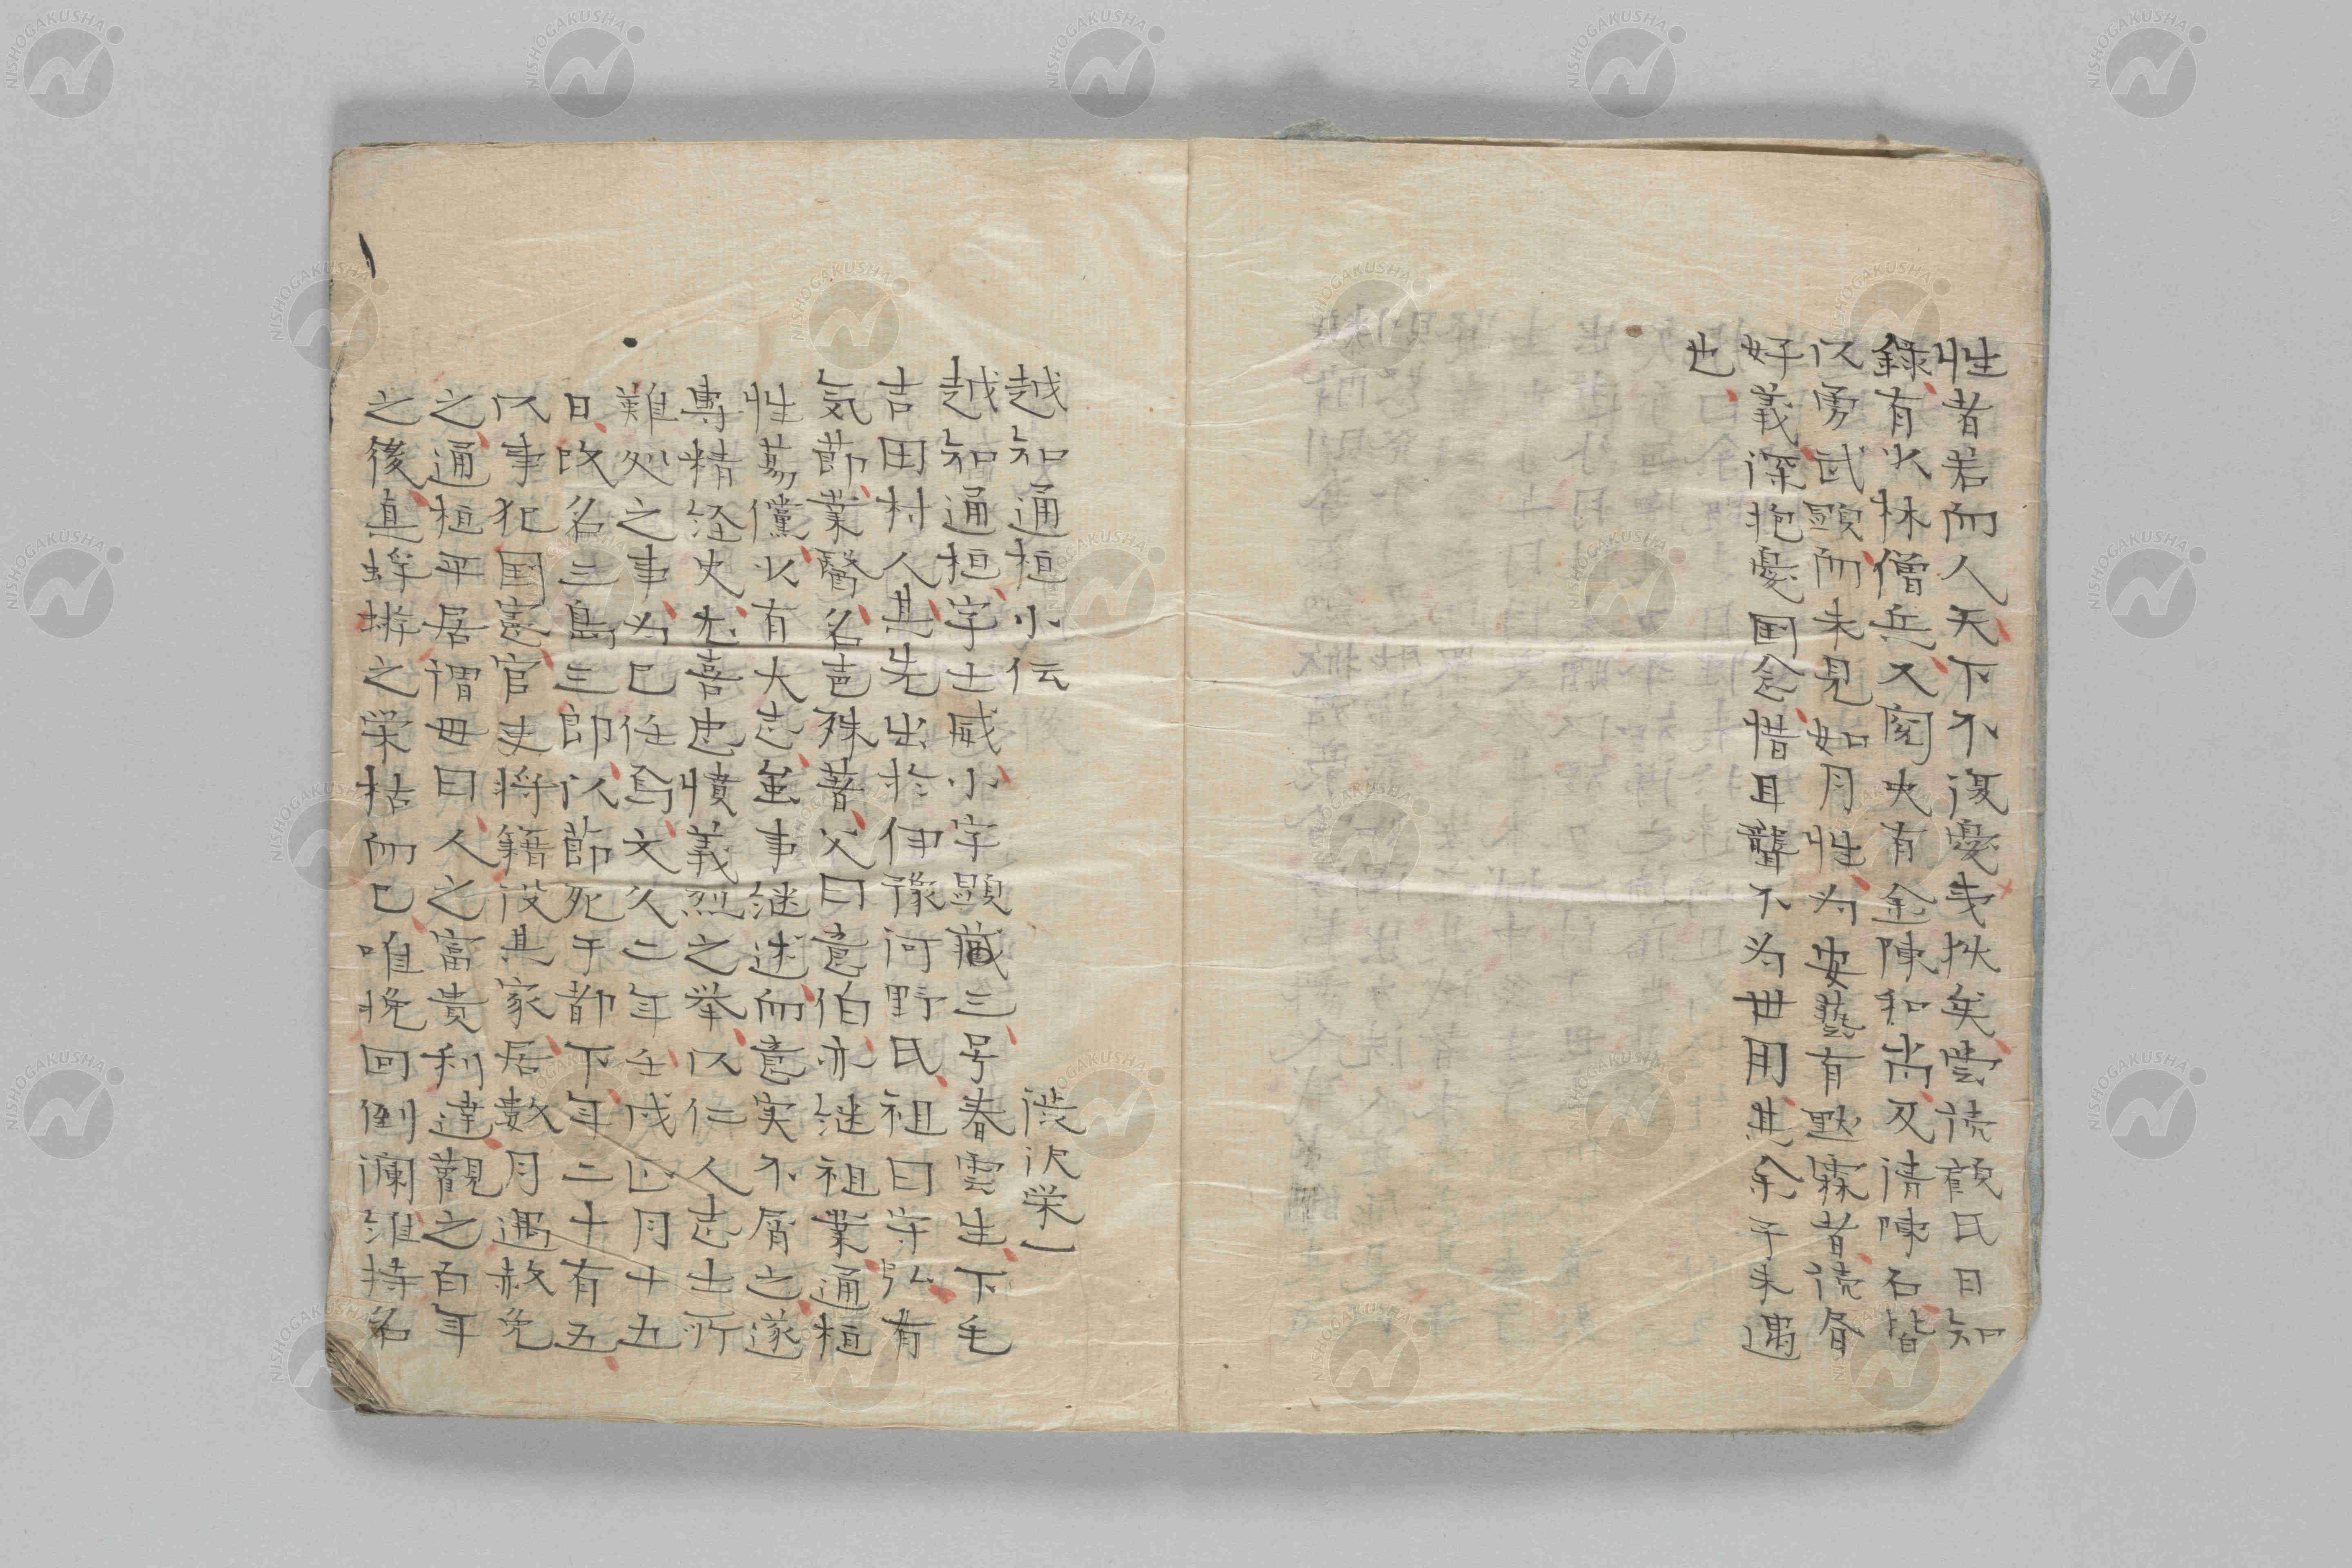 性者若而人天下不復憂夷狄矣嘗読顧氏日知
録有少林僧兵又閲史有金陳和尚又清陳石皆
以勇武顕而未見如月性為安藝有黙霖者読書
好義深抱憂国念惜耳聾不為世用其余予未遇
也
越知通桓小伝
渋沢栄一
越知通桓字士威小字顕蔵三号春雲生下毛
吉田村人其先出於伊豫河野氏祖曰守弘有
気節業醫名芭殊著父曰意伯亦継祖業通桓
性蕩儻少有大志虽事継述而意実不屑之遂
専精経史尤喜忠憤義烈之挙以仁人志士所
難処之事為己任焉文久二年壬戌正月十五
日改名三島三郎以節死于都下年二十有五
以事犯国憲官吏将籍没其家居数月遇赦免
之通桓平居謂毋曰人之富貴利達観之百年
之後直蜉蝣之栄枯而已唯挽回倒瀾維持名
NISHOGAKUSHA